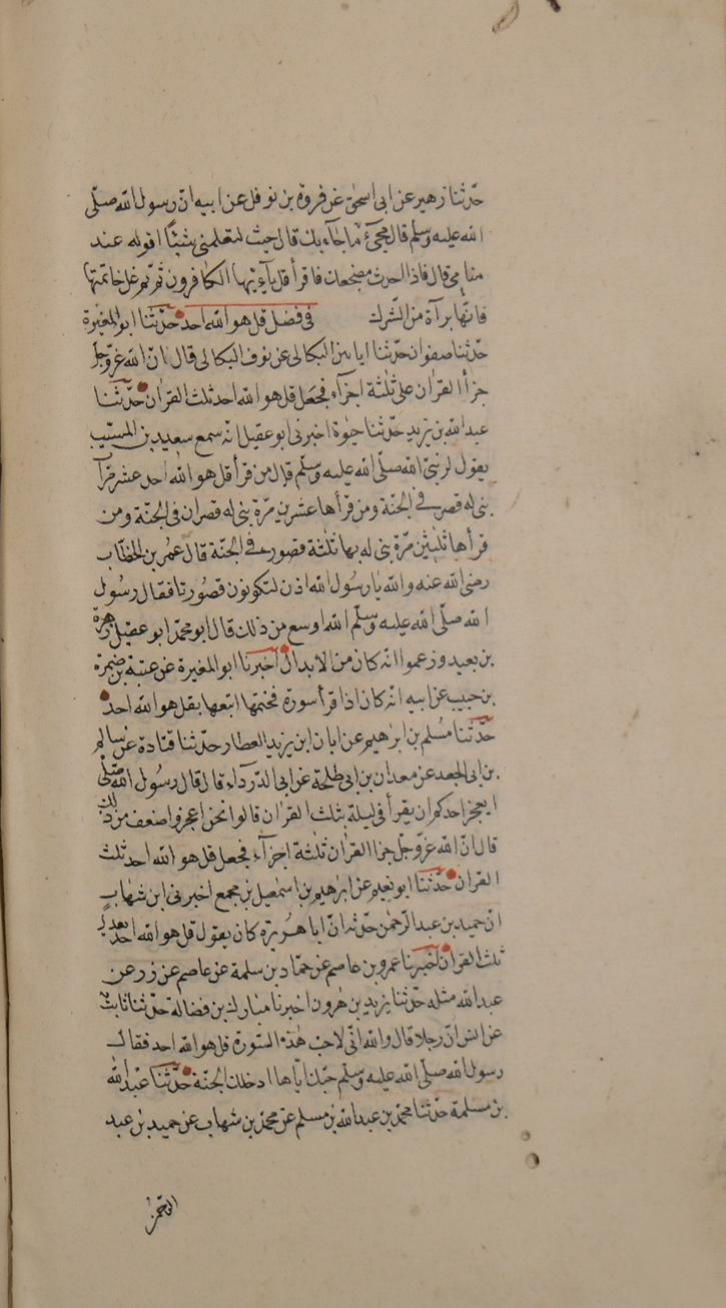 حدّثنا زهير عن ابى اسحق عن فروة بن نوفل عن ابيه انّ رسول الله صلّى
الله عليه وسلّم قال مجئ ما جاء بك قال جيت لتعلمنى شيئًا اقوله عند
منامى قال فاذا اخذت مضجعك فاقرأ قل يآءيّها الكافرون ثمّ نم على خاتمتها
فانّها برآة من الشّرك في فضل قل هو الله احد حدّثنا ابو المغيرة
حدّثنا صفوان حدّثنا البكالى عن نوف البكالى قال انّ الله عزّ وجلّ
جزأ القرآن على ثلثة اجزآء فجعل قل هو الله احد ثلث القرآن حدّثنا
عبد الله بن يزيد حدّثنا حيوة اخبرنى ابو عقيل انّه سمع سعيد بن المسيّب
يقول نبىّ الله صلّى الله عليه وسلّم قال من قرأ قل هو الله احد عشر
بنى له قصر في الجنّة ومن قرأها عشرين مرّة بنى له قصران فى الجنّة ومن
قرأها ثلثين مرّة بنى له بها ثلثة قصور في الجنّة قال عمر بن الخطّاب
رضى الله عنه والله يا رسول الله اذن لتكونون قصورنا فقال رسول
الله صلّى الله عليه وسلّم الله اوسع من ذلك قال ابو محمّد ابو عقيل زهرة
بن بعيد وزعموا انّه كان من الابدال اخبرنا ابو المغيرة عن عتبة بن ضمرة
بن حبيب عن ابيه انّه كان اذا قرأ سورة فختمها اتبعها بقل هو الله احد
حدّثنا مسلم بن ابرهيم عن ابان ابن يزيد العطار حدّثنا قتادة عن سالم
بن ابى الجعد عن معدان بن ابى طلحة عن ابى الدّرداء قال قال رسول الله صلّى
ايعجز احدكم ان يقرأ فى ليلة بثلث القرآن قالوا نحن اعجز واضعف من ذلك
قال انّ الله عزّ وجلّ جزا القرآن ثلثة اجزآء فجعل قل هو الله احد ثلث
القرآن حدّثنا ابو نعيم عن ابرهيم بن اسمعيل بن مجمع اخبرنى ابن شهاب
انّ حميد بن عبد الرّحمن حدّثه انّ ابا هريرة كان يقول قل هو الله احد يعدل
ثلث القرآن اخبرنا عمرو بن عاصم عن حمّاد بن سلمة عن عاصم عن زر عن
عبد الله مثله حدّثنا يزيد بن هرون اخبرنا مبارك بن فضالة حدّثنا ثابت
عن انس انّ رجلا قال والله انّى لاحبّ هذه السّورة قل هو الله احد فقال
رسول الله صلّى الله عليه وسلّم حبّك ايّاها ادخلك الجنّة حدّثنا عبد الله
بن مسلمة حدّثنا محمّد بن عبد الله بن مسلم عن محمّد بن شهاب عن حميد بن عبد
الرّحمن